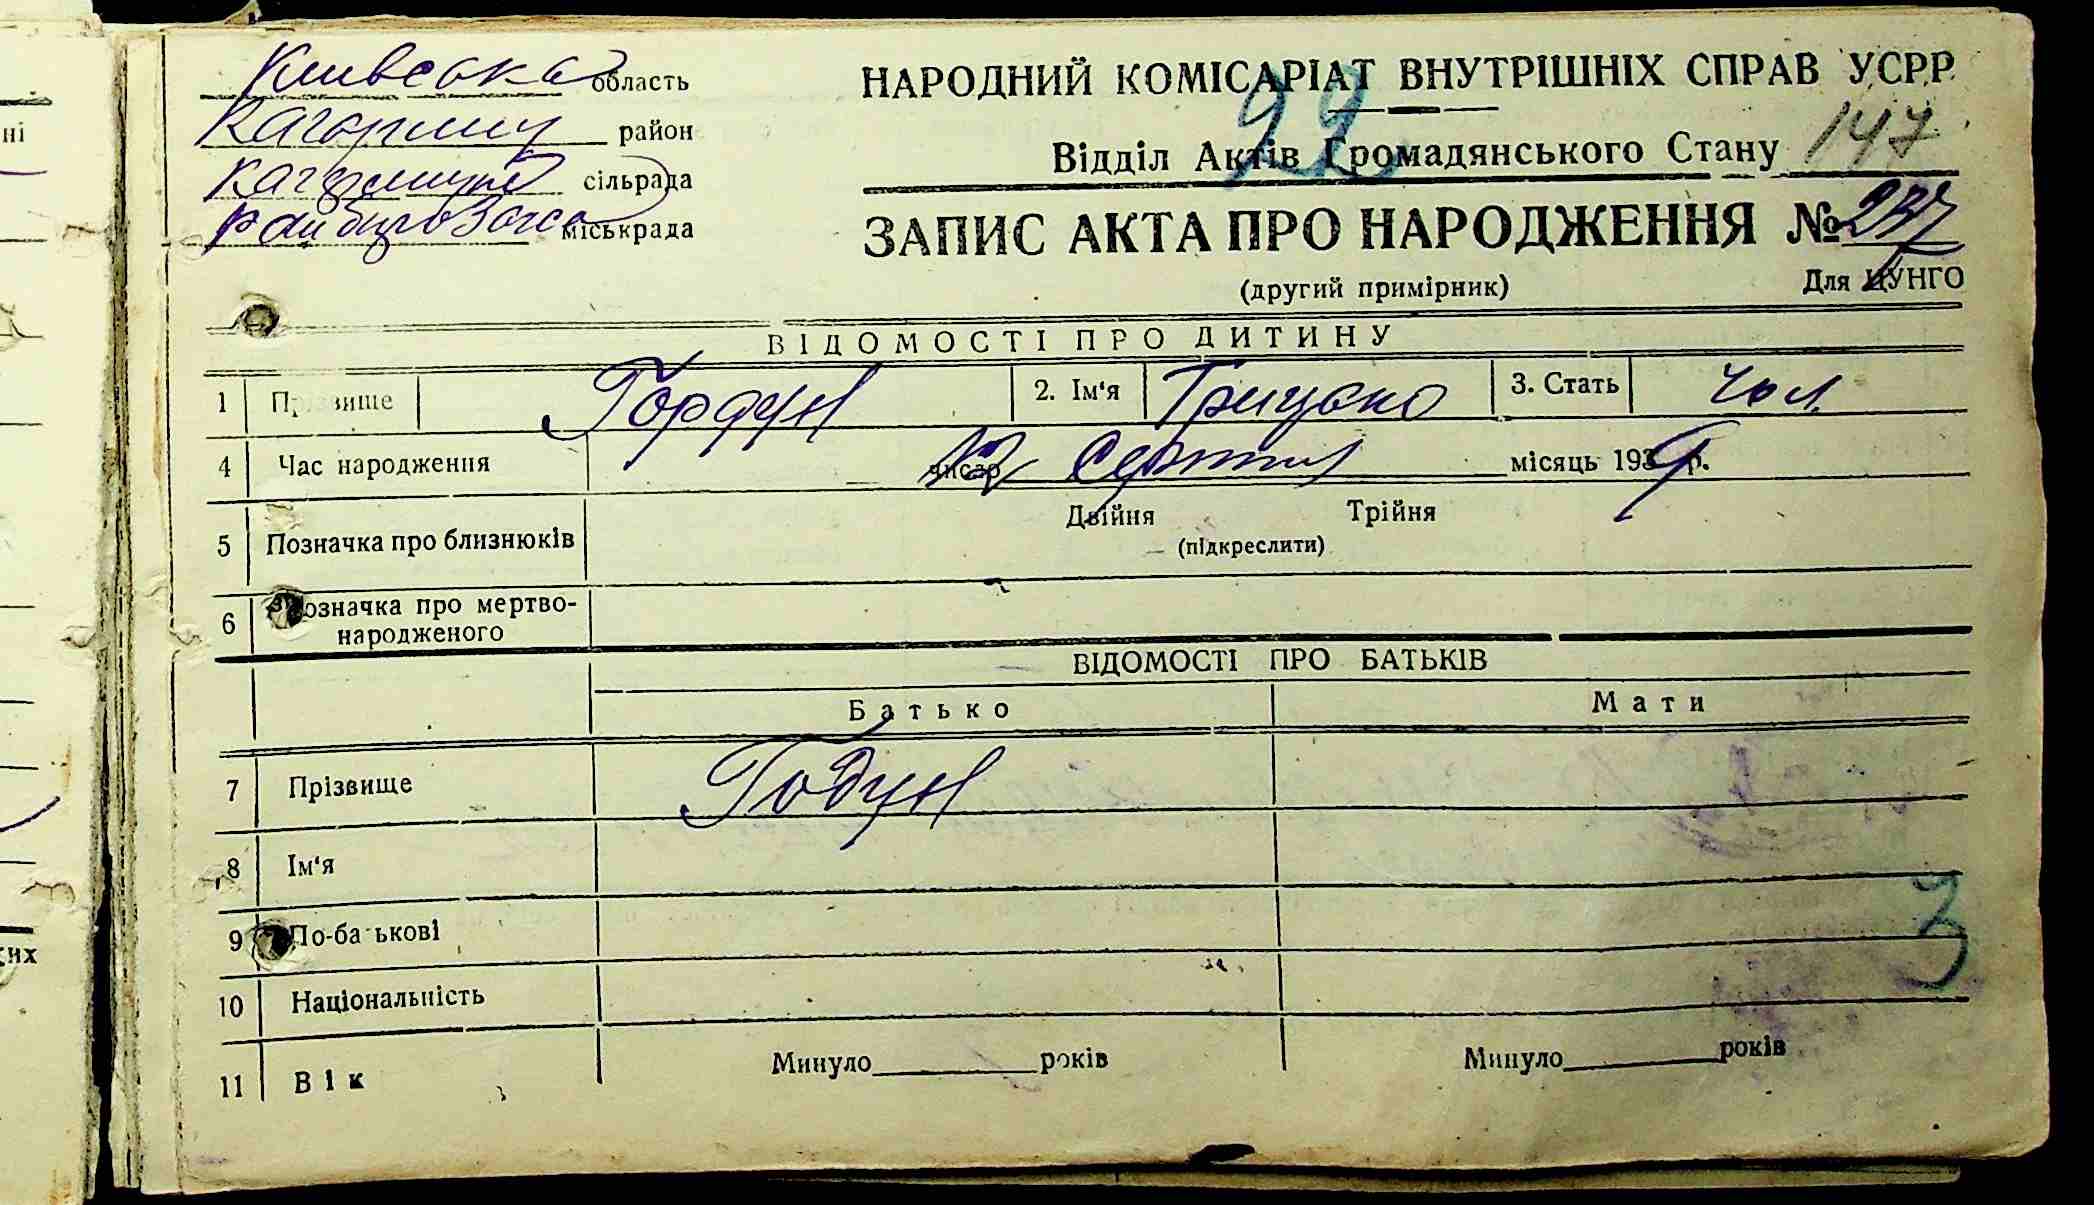 ні
них
Київська область
НАРОДНИЙ КОМІСАРІАТ ВНУТРІШНІХ СПРАВ УСРР
Кагарлиц район
22
147
Відділ Актів Громадянського Стану
сільрада
міськрада
ЗАПИС АКТА ПРО НАРОДЖЕННЯ № 237
(другий примірник)
Для ЦУНГО
ВІДОМОСТІ ПРО ДИТИНУ
1 Прізвище Гордун 2. Ім'я Грицько 3. Стать чол.
4 Час народження числа місяць 193 р.
5 Позначка про близнюків Двійня Трійня
(підкреслити)
6 Позначка про мертво-
народженого
ВІДОМОСТІ ПРО БАТЬКІВ
Батько Мати
7 Прізвище Годун
8 Ім'я
9 По-батькові
3
10 Національність
11 Вік Минуло років Минуло років